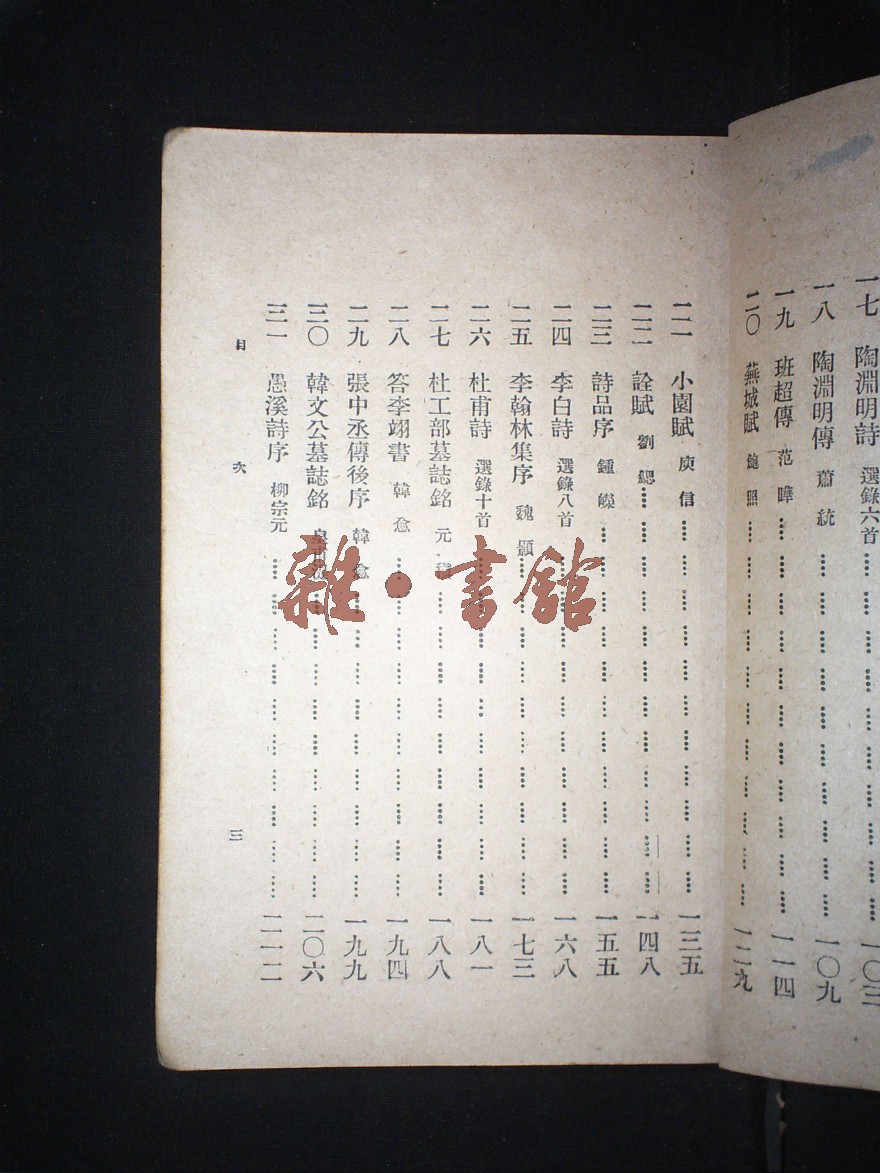 一七 陶淵明詩 選錄六首 …… 一〇三
一八 陶淵明傳 蕭統 …… 一〇九
一九 班超傳 范曄 …… 一一四
二〇 蕪城賦 鮑照 …… 一二九
二一 小園賦 庾信 …… 一三五
二二 詮賦 劉勰 …… 一四八
二三 詩品序 鍾嶸 …… 一五五
二四 李白詩 選錄八首 …… 一六八
二五 李翰林集序 魏顥 …… 一七三
二六 杜甫詩 選錄十首 …… 一八一
二七 杜工部墓誌銘 元稹 …… 一八八
二八 答李翊書 韓愈 …… 一九四
二九 張中丞傳後序 韓愈 …… 一九九
三〇 韓文公墓誌銘 皇甫湜 …… 二〇六
三一 愚溪詩序 柳宗元 …… 二一二
目次 三
雜·書館